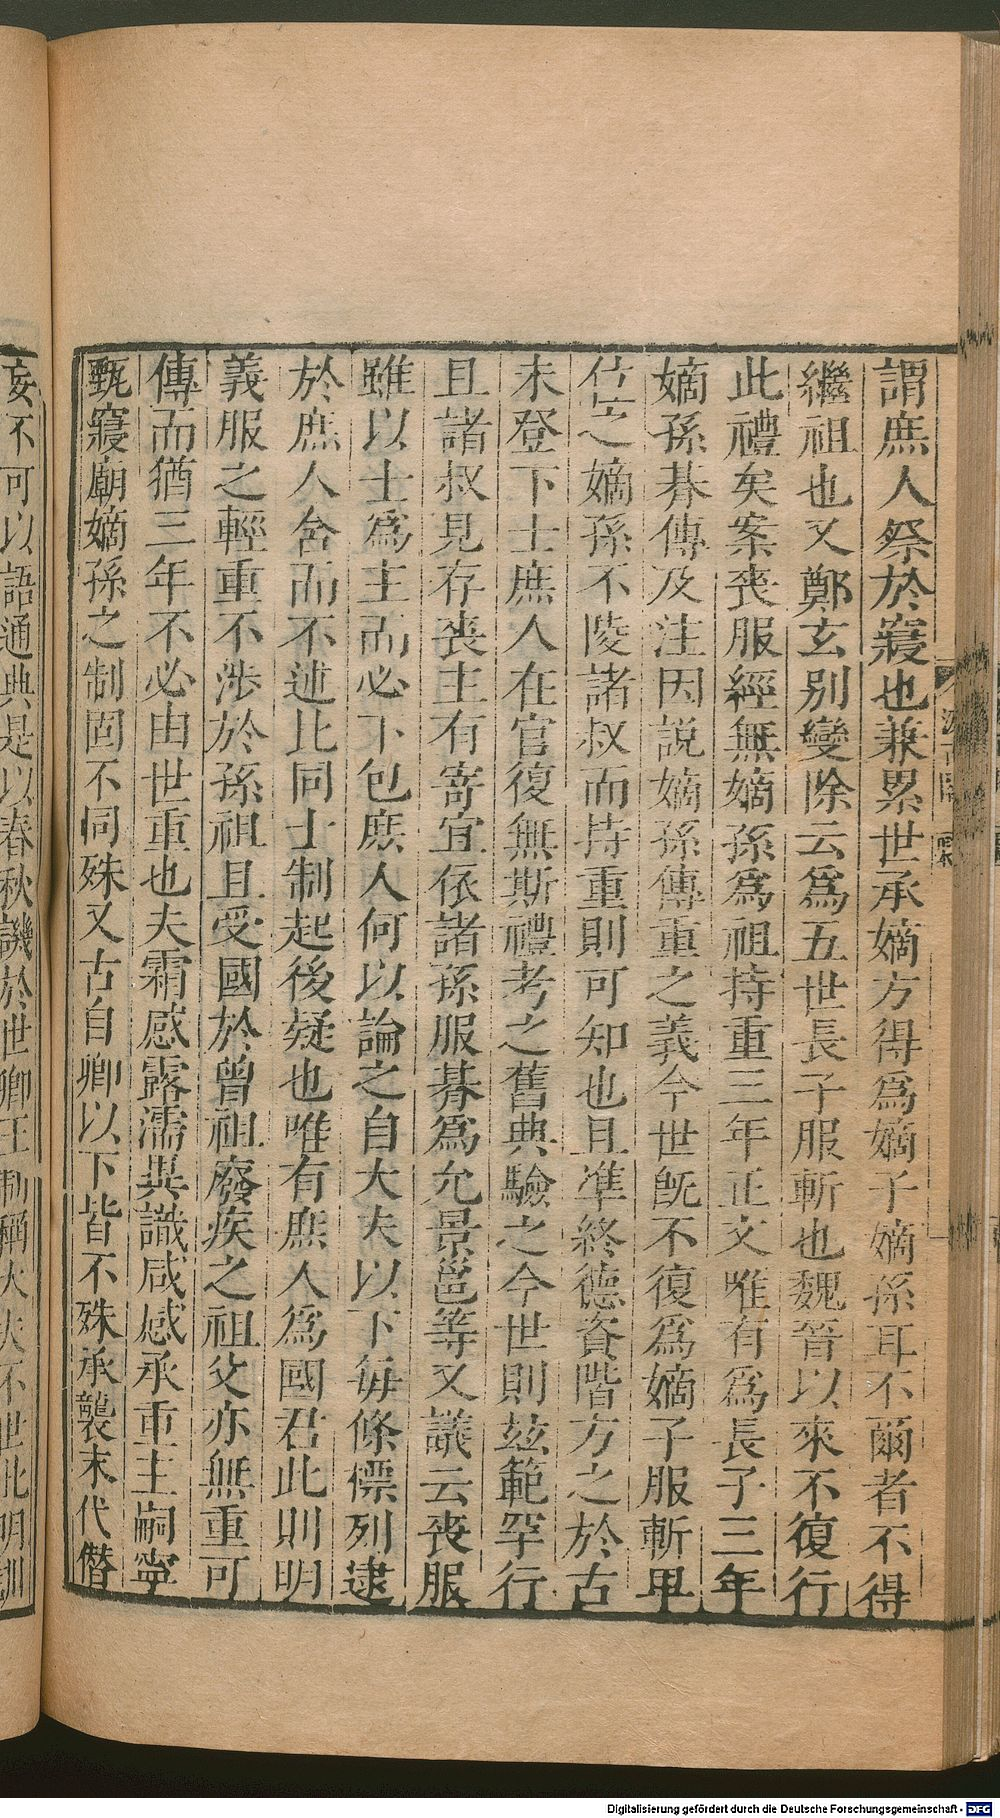 謂庶人祭於寢也兼累世承嫡方得爲嫡子嫡孫耳不爾者不得
繼祖也又鄭玄別變除云爲五世長子服斬也魏晉以來不復行
此禮矣案喪服經無嫡孫爲祖持重三年正文唯有爲長子三年
嫡孫朞傳及注因說嫡孫傳重之義今世旣不復爲嫡子服斬卑
位之嫡孫不陵諸叔而持重則可知也且准終德資階方之於古
未登下士庶人在官復無斯禮考之舊典驗之今世則玆範罕行
且諸叔見存喪主有寄宜依諸孫服朞爲允景邕等又議云喪服
雖以士爲主而必下包庶人何以論之自大夫以下每條標列逮
於庶人含而不述比同士制起後疑也唯有庶人爲國君此則明
義服之輕重不涉於孫祖且受國於曾祖廢疾之祖父亦無重可
傳而猶三年不必由世重也夫霜感露濡異識咸感承重主嗣寧
甄寢廟嫡孫之制固不同殊又古自卿以下皆不殊承襲末代僭
妄不可以語通典是以春秋譏於世卿王制稱大夫不世此明訓
Digitalisierung gefördert durch die Deutsche Forschungsgemeinschaft - DFG